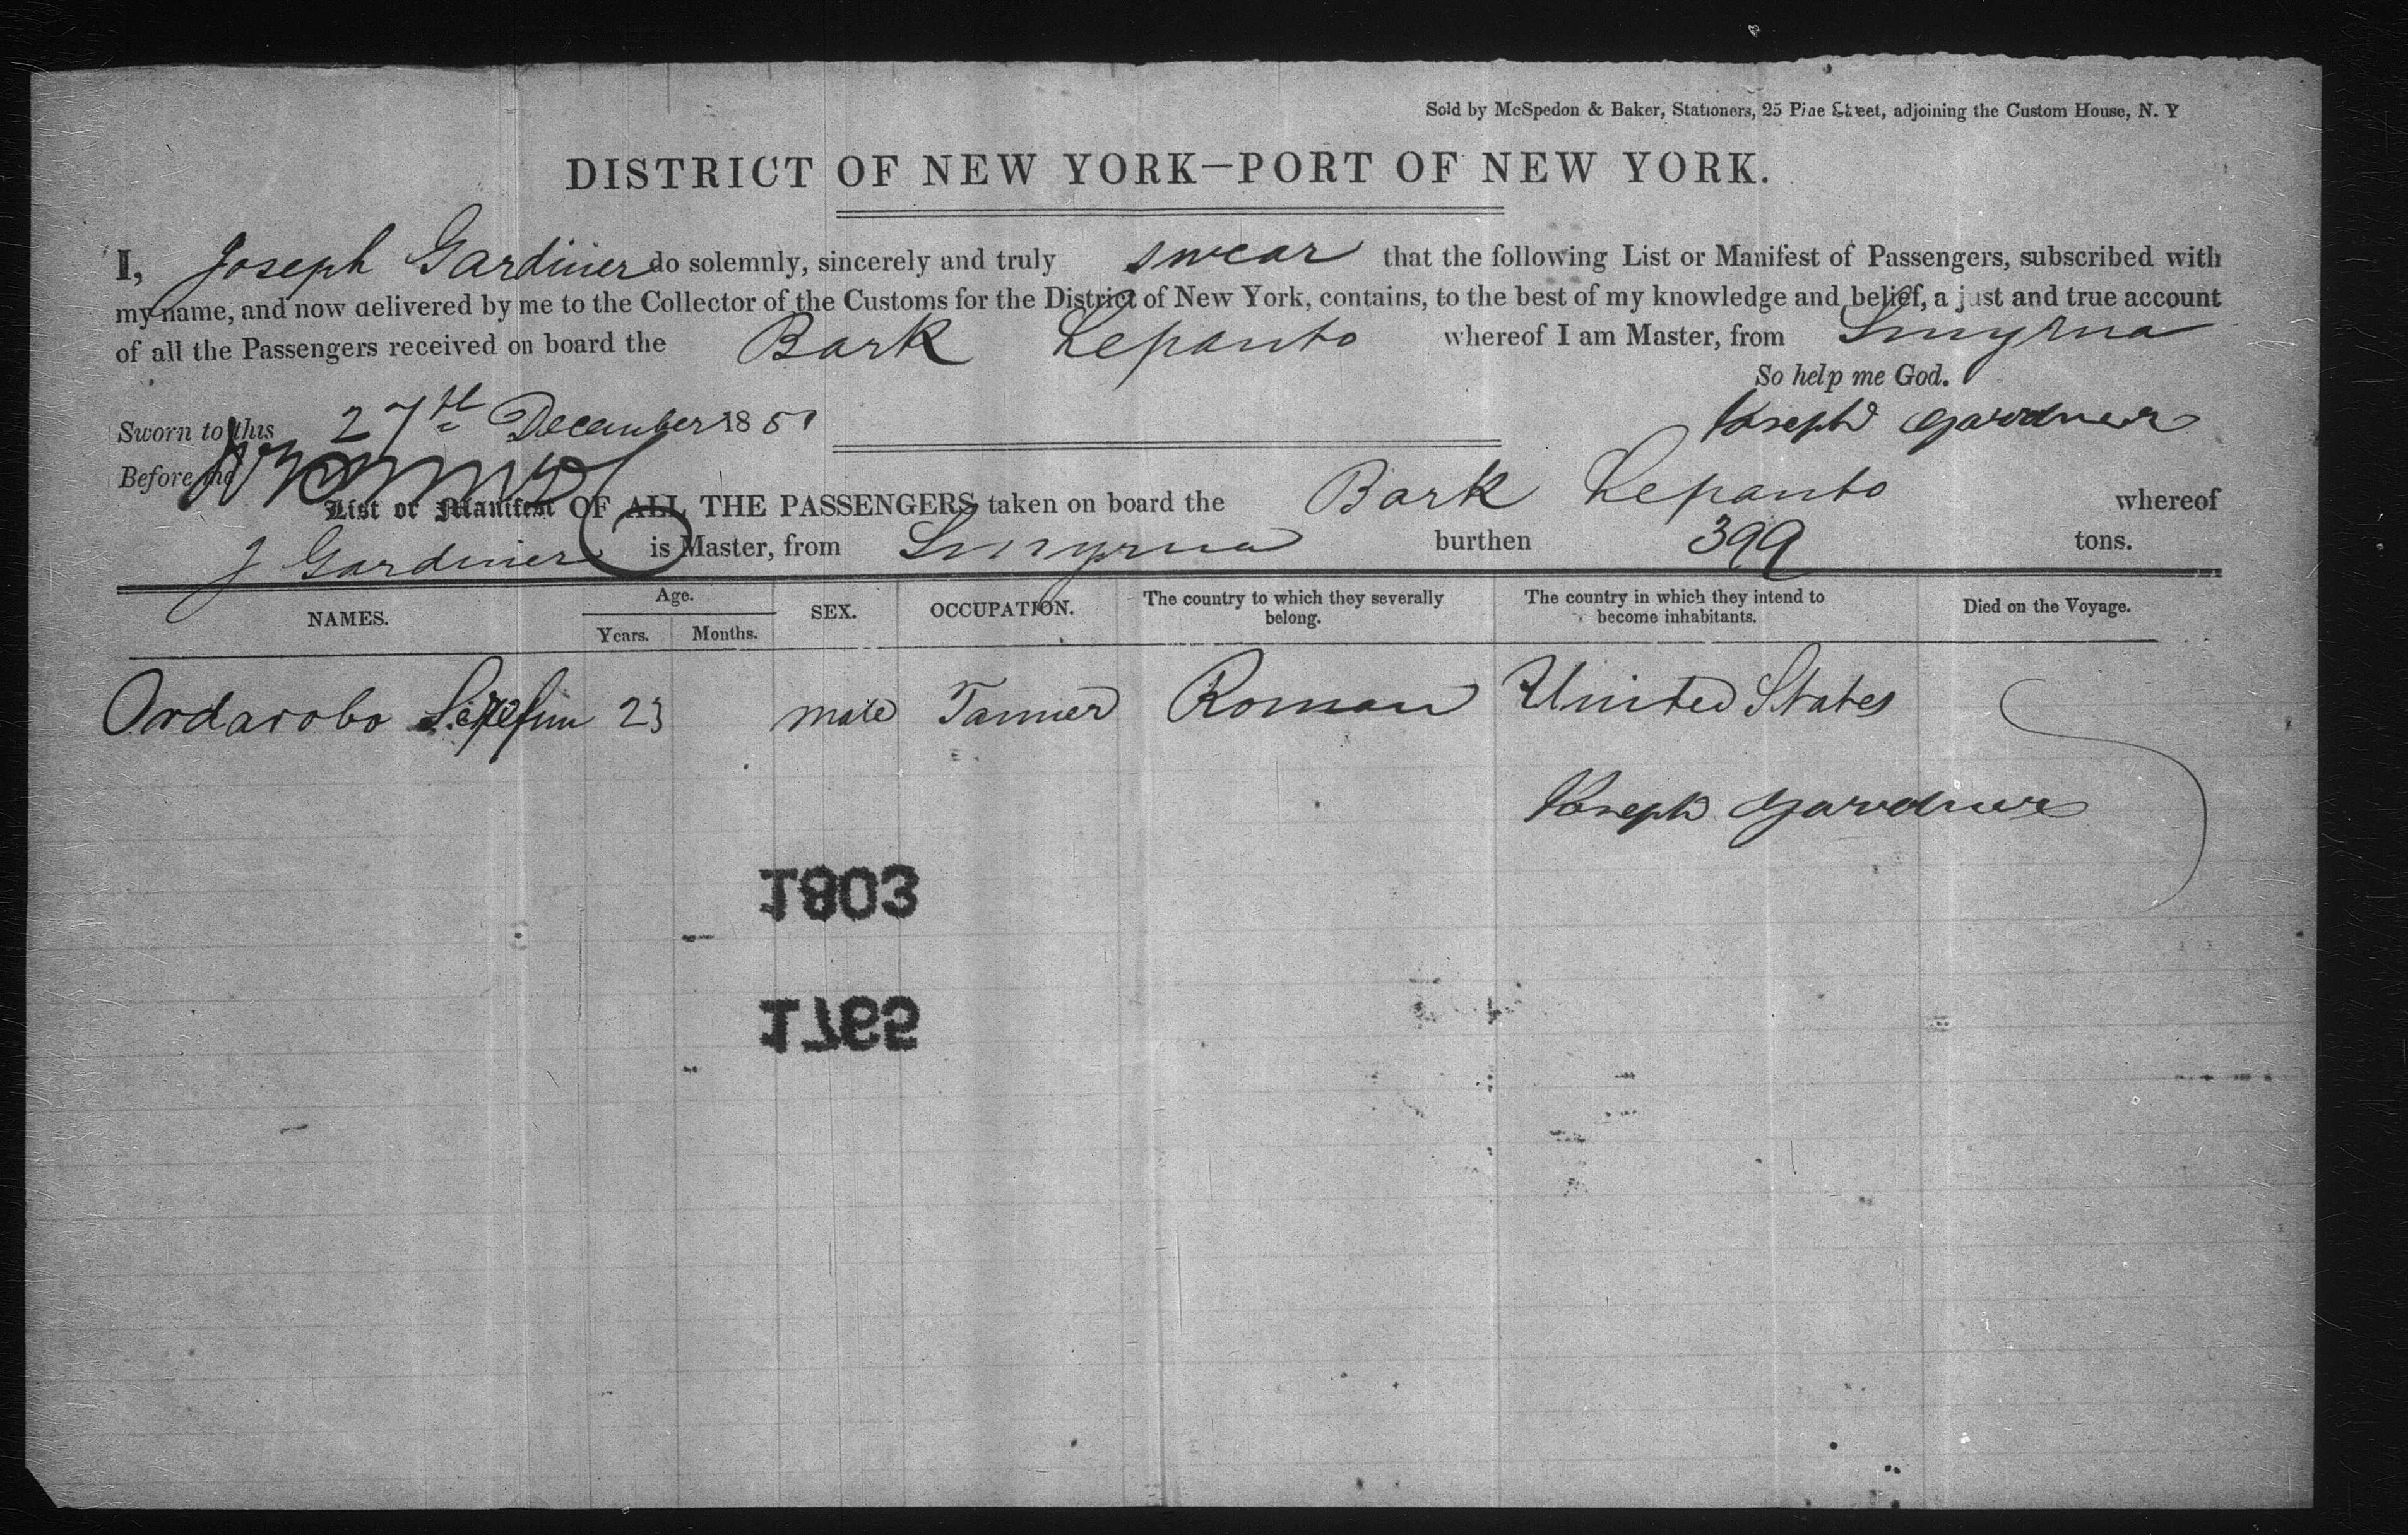 Sold by McSpedon & Baker, Stationers, 25 Pine Street, adjoining the Custom House, N. Y
DISTRICT OF NEW YORK—PORT OF NEW YORK.
I, Joseph Gardiner do solemnly, sincerely and truly swear that the following List or Manifest of Passengers, subscribed with
my name, and now delivered by me to the Collector of the Customs for the District of New York, contains, to the best of my knowledge and belief, a just and true account
of all the Passengers received on board the Bark Lepanto whereof I am Master, from Smyrna
So help me God.
Sworn to this 27th December 1851 Joseph Gardner
Before me
List or Manifest OF ALL THE PASSENGERS taken on board the Bark Lepanto whereof
J Gardiner is Master, from Smyrna burthen 399 tons.
NAMES. Age. Years. Months. SEX. OCCUPATION. The country to which they severally belong. The country in which they intend to become inhabitants. Died on the Voyage.
Ordarobo 23 male Tanner Roman United States
Joseph Gardner
1803
1765